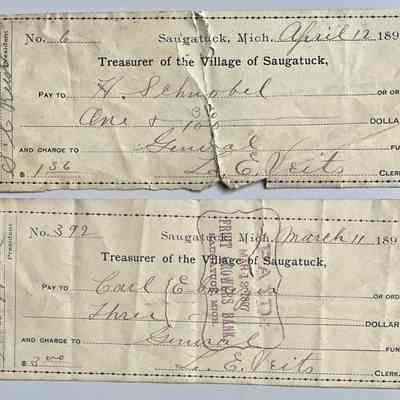 President
No. 6 Saugatuck, Mich. April 12 189
Treasurer of the Village of Saugatuck,
PAY TO H. Schnobel OR OR
One & 36/100 DOLLA
AND CHARGE TO General FU
$ 1 36 L. E. Veits CLERK
President
No. 392 Saugatuck, Mich. March 11 189
Treasurer of the Village of Saugatuck,
PAY TO Carl E. OR ORD
Three DOLLAR
AND CHARGE TO General FUN
$ 3 00 L. E. Veits CLERK.
PAID
MAR 1897
FRUIT GROWERS BANK
SAUGATUCK, MICH.